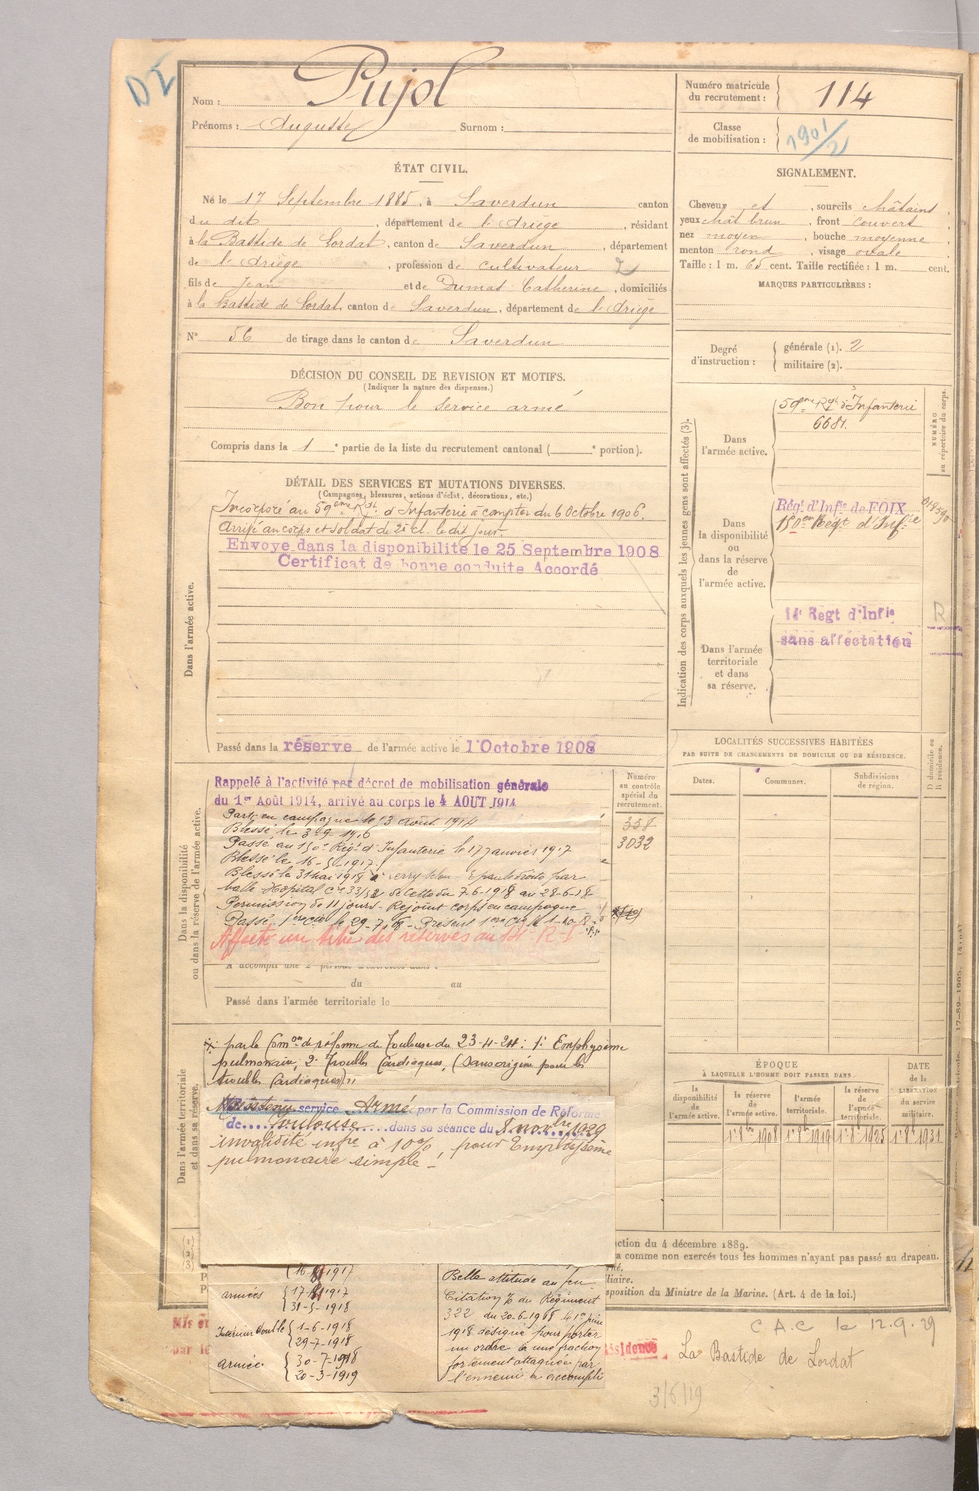 DI
Nom : Pujol
Prénoms : Auguste Surnom :
Numéro matricule du recrutement : 114
Classe de mobilisation : 1901/2
ÉTAT CIVIL.
Né le 17 Septembre 1885, à Saverdun canton
du dit, département de l'Ariège, résidant
à la Bastide de Lordat, canton de Saverdun, département
de l'Ariège, profession de cultivateur
fils de Jean et de Dumas Catherine, domiciliés
à la Bastide de Lordat, canton de Saverdun, département de l'Ariège
N° 56 de tirage dans le canton de Saverdun
SIGNALEMENT.
Cheveux et, sourcils châtains,
yeux chât brun, front couvert,
nez moyen, bouche moyenne,
menton rond, visage ovale.
Taille : 1 m. 65 cent. Taille rectifiée : 1 m. cent.
MARQUES PARTICULIÈRES :
Degré d'instruction : générale (1). 2
militaire (2).
DÉCISION DU CONSEIL DE REVISION ET MOTIFS.
(Indiquer la nature des dispenses.)
Bon pour le service armé
Compris dans la 1e partie de la liste du recrutement cantonal ( e portion).
DÉTAIL DES SERVICES ET MUTATIONS DIVERSES.
(Campagnes, blessures, actions d'éclat, décorations, etc.)
Dans l'armée active.
Incorporé au 59ème Rgt d'Infanterie à compter du 6 Octobre 1906.
Arrivé au corps et soldat de 2e cl. le dit jour.
Envoyé dans la disponibilité le 25 Septembre 1908
Certificat de bonne conduite Accordé
Passé dans la réserve de l'armée active le 1 Octobre 1908
Indication des corps auxquels les jeunes gens sont affectés (3).
NUMÉRO au répertoire du corps.
Dans l'armée active.
59ème Rgt d'Infanterie
6681.
Dans la disponibilité ou dans la réserve de l'armée active.
Régt d'Infie de FOIX
Dans l'armée territoriale et dans sa réserve.
14e Regt d'Infie
sans affectation
R
LOCALITÉS SUCCESSIVES HABITÉES
PAR SUITE DE CHANGEMENTS DE DOMICILE OU DE RÉSIDENCE.
Dates. Communes. Subdivisions de région. D domicile ou R résidence.
Dans la disponibilité ou dans la réserve de l'armée active.
Numéro au contrôle spécial du recrutement.
358
3032
Rappelé à l'activité par décret de mobilisation générale
du 1er Août 1914, arrivé au corps le 4 AOUT 1914
Parti en campagne le 13 août 1914
Blessé le
Passé au 150e Régt d'Infanterie le 17 janvier 1917
Blessé le 16-5-1917.
Blessé le 31 mai 1918 à
balle Hôpital au 28-6-18
Permission de 11 jours - Rejoint corps en campagne
Passé le 29-7-18
Affecté au titre des réserves au
Passé dans l'armée territoriale le
du au
Dans l'armée territoriale et dans sa réserve.
par la Comon de réforme de Toulouse du 23-4-24 : 1° Emphysème
pulmonaire, 2° Troubles Cardiaques, (Sans origine pour les
troubles Cardiaques) "
Maintenu service Armé par la Commission de Réforme
de Toulouse dans sa séance du 8 novbre 1929
invalidité infre à 10%, pour Emphysème
pulmonaire simple -
ÉPOQUE
À LAQUELLE L'HOMME DOIT PASSER DANS :
la disponibilité de l'armée active.
la réserve de l'armée active.
l'armée territoriale.
la réserve de l'armée territoriale.
DATE de la LIBÉRATION du service militaire.
1r 8bre 1908 1r 8bre 1919 1r 8bre 1925 1r 8bre 1931
(1)
(2)
(3)
ction du 4 décembre 1889.
a comme non exercés tous les hommes n'ayant pas passé au drapeau.
né.
iliaire.
sposition du Ministre de la Marine. (Art. 4 de la loi.)
armées 17- -1917
31-5-1918
Intérieur double 1-6-1918
29-7-1918
armée 30-7-1918
20-3-1919
Belle attitude au feu
Citation du Régiment
322 du 20-6-1918
1918 désigné pour porter
un ordre à une fraction
fortement attaquée par
l'ennemi a accompli
C.A.C le 12.9.29
La Bastide de Lordat
3/6/19